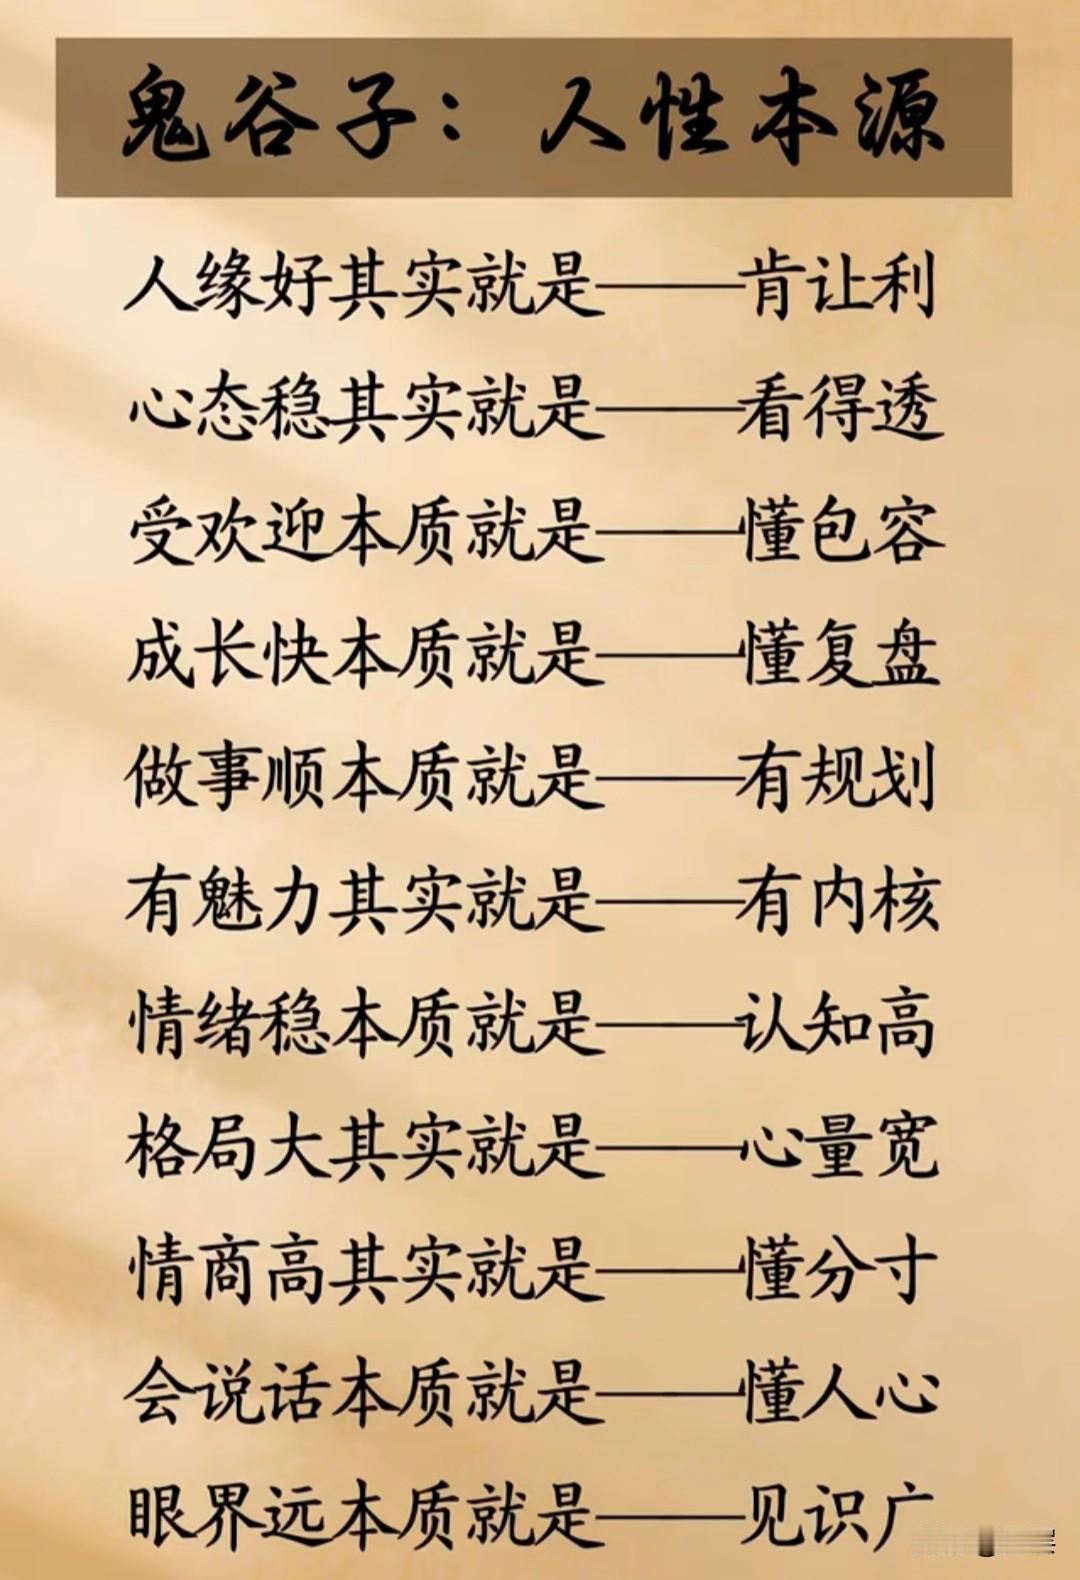 鬼谷子：人性本源
人缘好其实就是——肯让利
心态稳其实就是——看得透
受欢迎本质就是——懂包容
成长快本质就是——懂复盘
做事顺本质就是——有规划
有魅力其实就是——有内核
情绪稳本质就是——认知高
格局大其实就是——心量宽
情商高其实就是——懂分寸
会说话本质就是——懂人心
眼界远本质就是——见识广